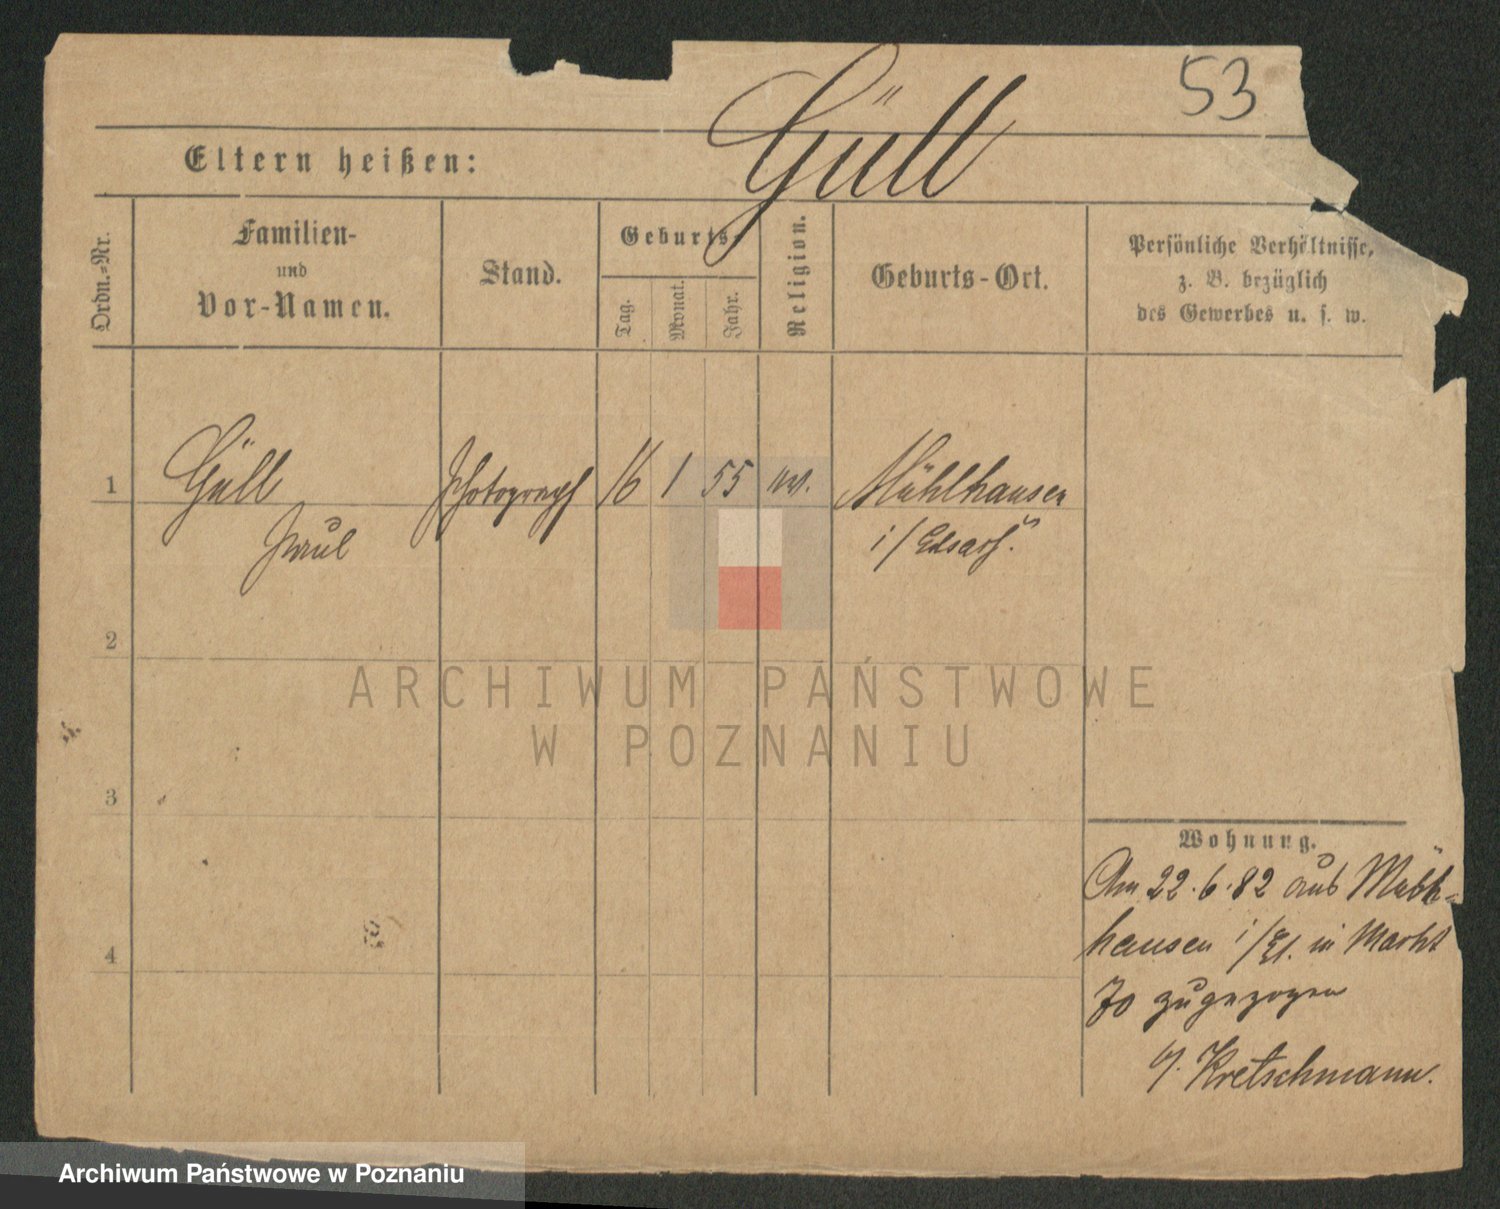 53
Güll
Eltern heißen:
Ordn.-Nr.
Familien-
und
Vor-Namen.
Stand.
Geburts-
Tag.
Monat.
Jahr.
Religion.
Geburts-Ort.
Persönliche Verhältnisse,
z. B. bezüglich
des Gewerbes u. s. w.
1
Güll
Paul
Photograph
16
1
55
ev.
Mühlhausen
i/Elsass.
2
ARCHIWUM PAŃSTWOWE
W POZNANIU
3
4
Wohnung.
Am 22.6.82 aus Mühl-
hausen i/El. in Markt
70 zugezogen
b/. Kretschmann.
Archiwum Państwowe w Poznaniu